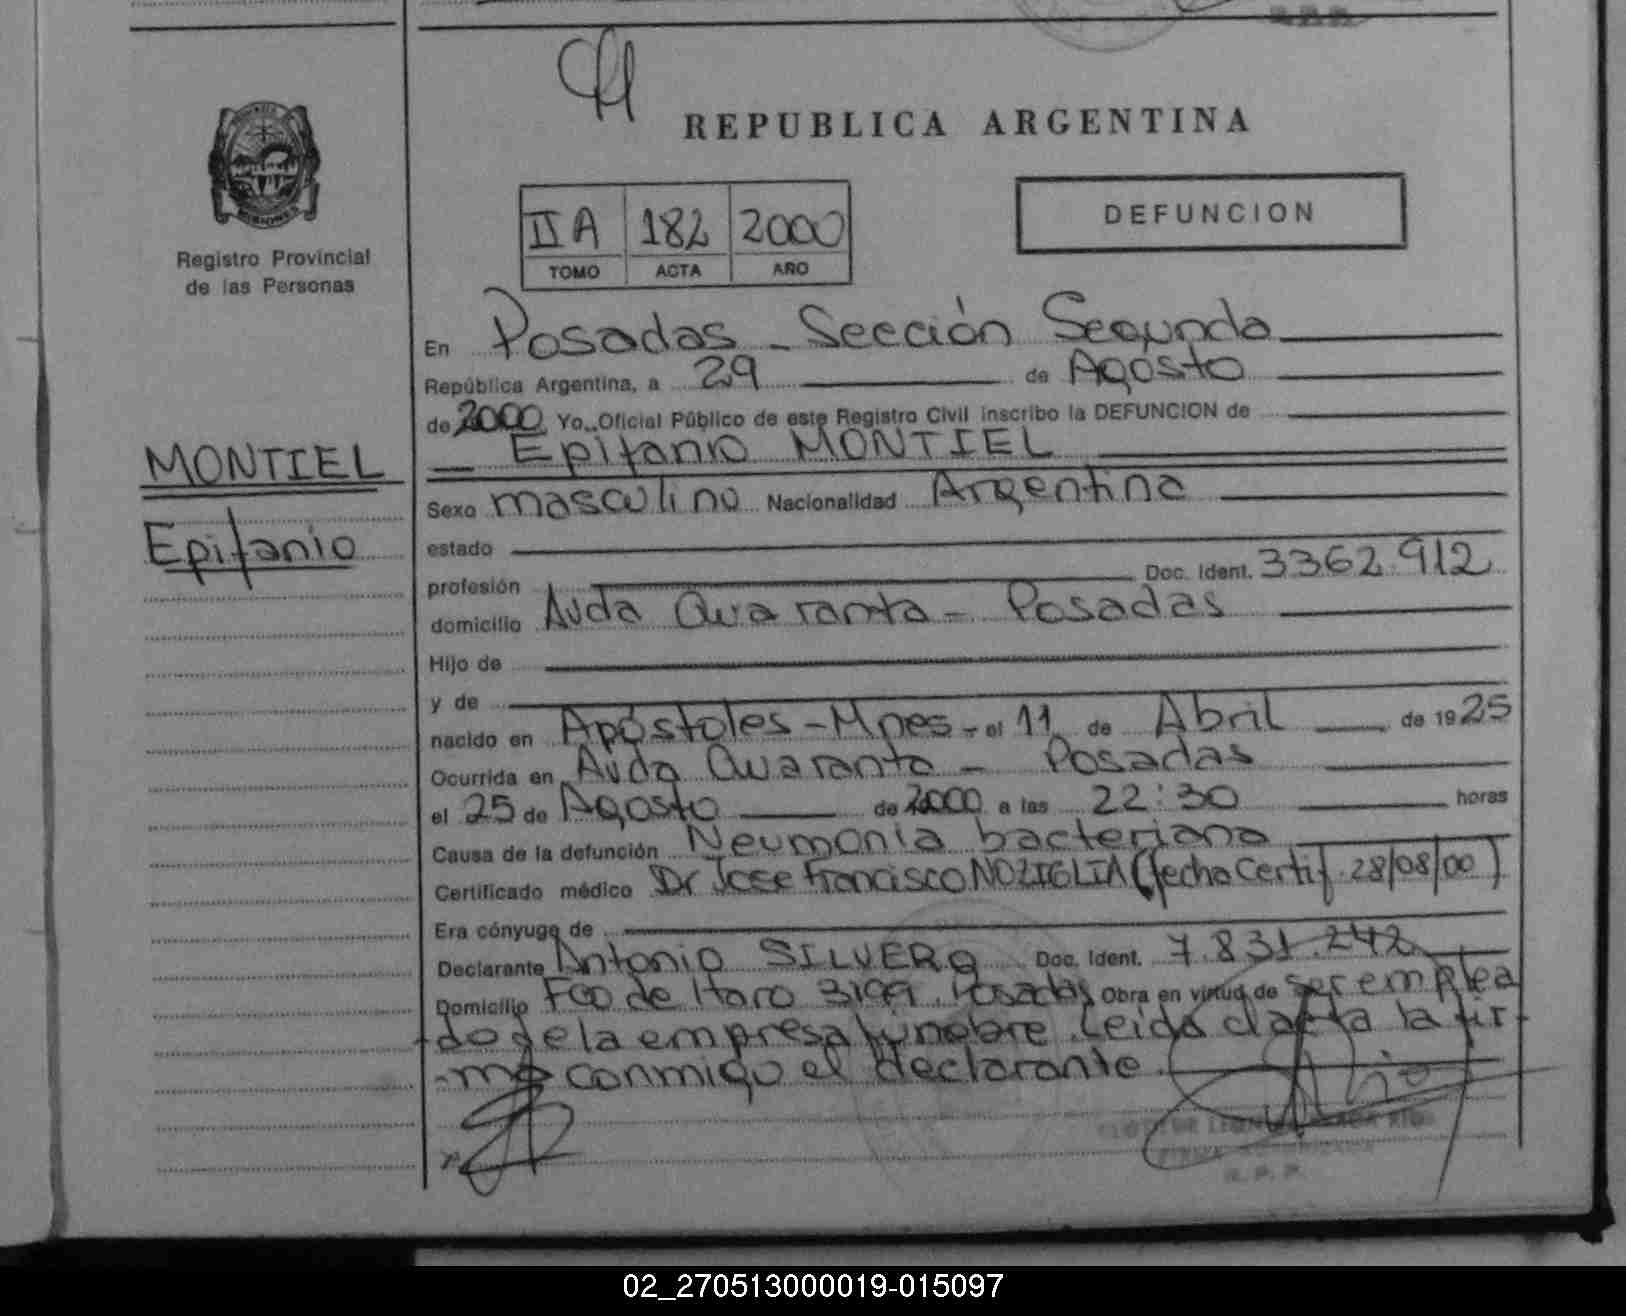 REPUBLICA ARGENTINA
MISIONES
Registro Provincial
de las Personas
II A 182 2000
TOMO ACTA AÑO
DEFUNCION
MONTIEL
Epifanio
En Posadas - Sección Segunda
República Argentina, a 29 de Agosto
de 2000 Yo, Oficial Público de este Registro Civil inscribo la DEFUNCION de
Epifanio MONTIEL
Sexo masculino Nacionalidad Argentina
estado
profesión Doc. Ident. 3362.912
domicilio Avda Quaranta - Posadas
Hijo de
y de
nacido en Apóstoles - Mnes - el 11 de Abril de 1925
Ocurrida en Avda Quaranta - Posadas
el 25 de Agosto de 2000 a las 22:30 horas
Causa de la defunción Neumonía bacteriana
Certificado médico Dr Jose Francisco NOZIGLIA (fecha Certif. 28/08/00)
Era cónyuge de
Declarante Antonio SILVERO Doc. Ident. 7.831.242
Domicilio Fco de Haro 3199. Posadas Obra en virtud de ser emplea
do de la empresa fúnebre. Leída el acta la fir-
-ma conmigo el declarante.
R. P. P.
02_270513000019-015097